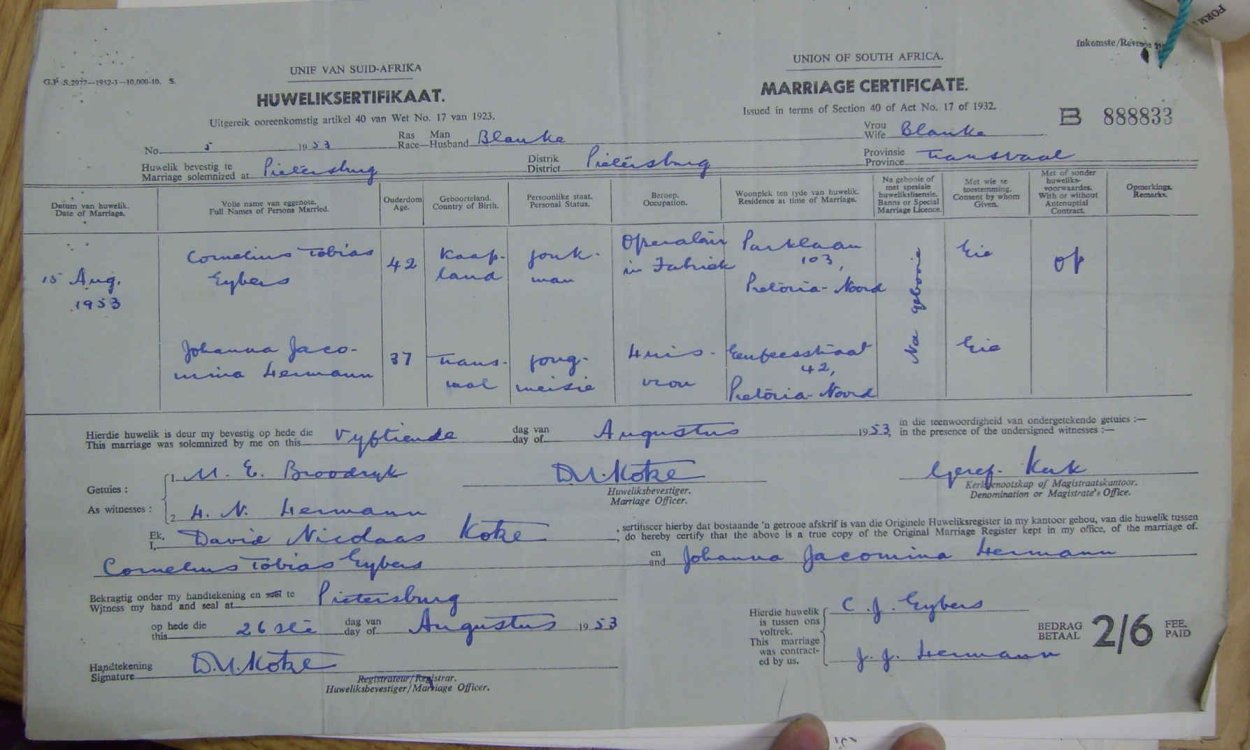 Inkomste/Revenue
G.P.-S.2977—1952-3—10,000-10. S.
UNIE VAN SUID-AFRIKA
UNION OF SOUTH AFRICA.
HUWELIKSERTIFIKAAT.
MARRIAGE CERTIFICATE.
Uitgereik ooreenkomstig artikel 40 van Wet No. 17 van 1923.
Issued in terms of Section 40 of Act No. 17 of 1932.
B 888833
No. 5 1953
Ras Man
Race—Husband Blanke
Vrou
Wife Blanke
Huwelik bevestig te
Marriage solemnized at Pietersburg
Distrik
District Pietersburg
Provinsie
Province Transvaal
Datum van huwelik.
Date of Marriage.
Volle name van eggenote.
Full Names of Persons Married.
Ouderdom
Age.
Geboorteland.
Country of Birth.
Persoonlike staat.
Personal Status.
Beroep.
Occupation.
Woonplek ten tyde van huwelik.
Residence at time of Marriage.
Na gebooie of
met spesiale
huwelikslisensie.
Banns or Special
Marriage Licence.
Met wie se
toestemming.
Consent by whom
Given.
Met of sonder
huweliks-
voorwaardes.
With or without
Antenuptial
Contract.
Opmerkings.
Remarks.
15 Aug.
1953
Cornelius Tobias
Eybers
42
Kaap-
land
jonk-
man
Operateur
in Fabriek
Parklaan
103,
Pretoria-Noord
Na gebooie
Eie
Johanna Jaco-
mina Hermann
37
Trans-
vaal
jong-
meisie
Huis-
vrou
Eeufeesstraat
42,
Pretoria-Noord
Eie
Hierdie huwelik is deur my bevestig op hede die
This marriage was solemnized by me on this Vyftiende
dag van
day of Augustus 1953,
in die teenwoordigheid van ondergetekende getuies :—
in the presence of the undersigned witnesses :—
Getuies :
As witnesses :
1 M. E. Broodryk
2 H. N. Hermann
D.N. Kotze
Huweliksbevestiger.
Marriage Officer.
Geref. Kerk
Kerkgenootskap of Magistraatskantoor.
Denomination or Magistrate's Office.
Ek,
I, David Nicolaas Kotze
, sertifiseer hierby dat bostaande 'n getroue afskrif is van die Originele Huweliksregister in my kantoor gehou, van die huwelik tussen
, do hereby certify that the above is a true copy of the Original Marriage Register kept in my office, of the marriage of.
Cornelius Tobias Eybers
en
and Johanna Jacomina Hermann
Bekragtig onder my handtekening en seël te
Witness my hand and seal at Pietersburg
op hede die
this 26ste
dag van
day of Augustus 1953
Handtekening
Signature D.N. Kotze
Registrateur/Registrar.
Huweliksbevestiger/Marriage Officer.
Hierdie huwelik
is tussen ons
voltrek.
This marriage
was contract-
ed by us.
C. J. Eybers
J. J. Hermann
BEDRAG
BETAAL 2/6 FEE.
PAID